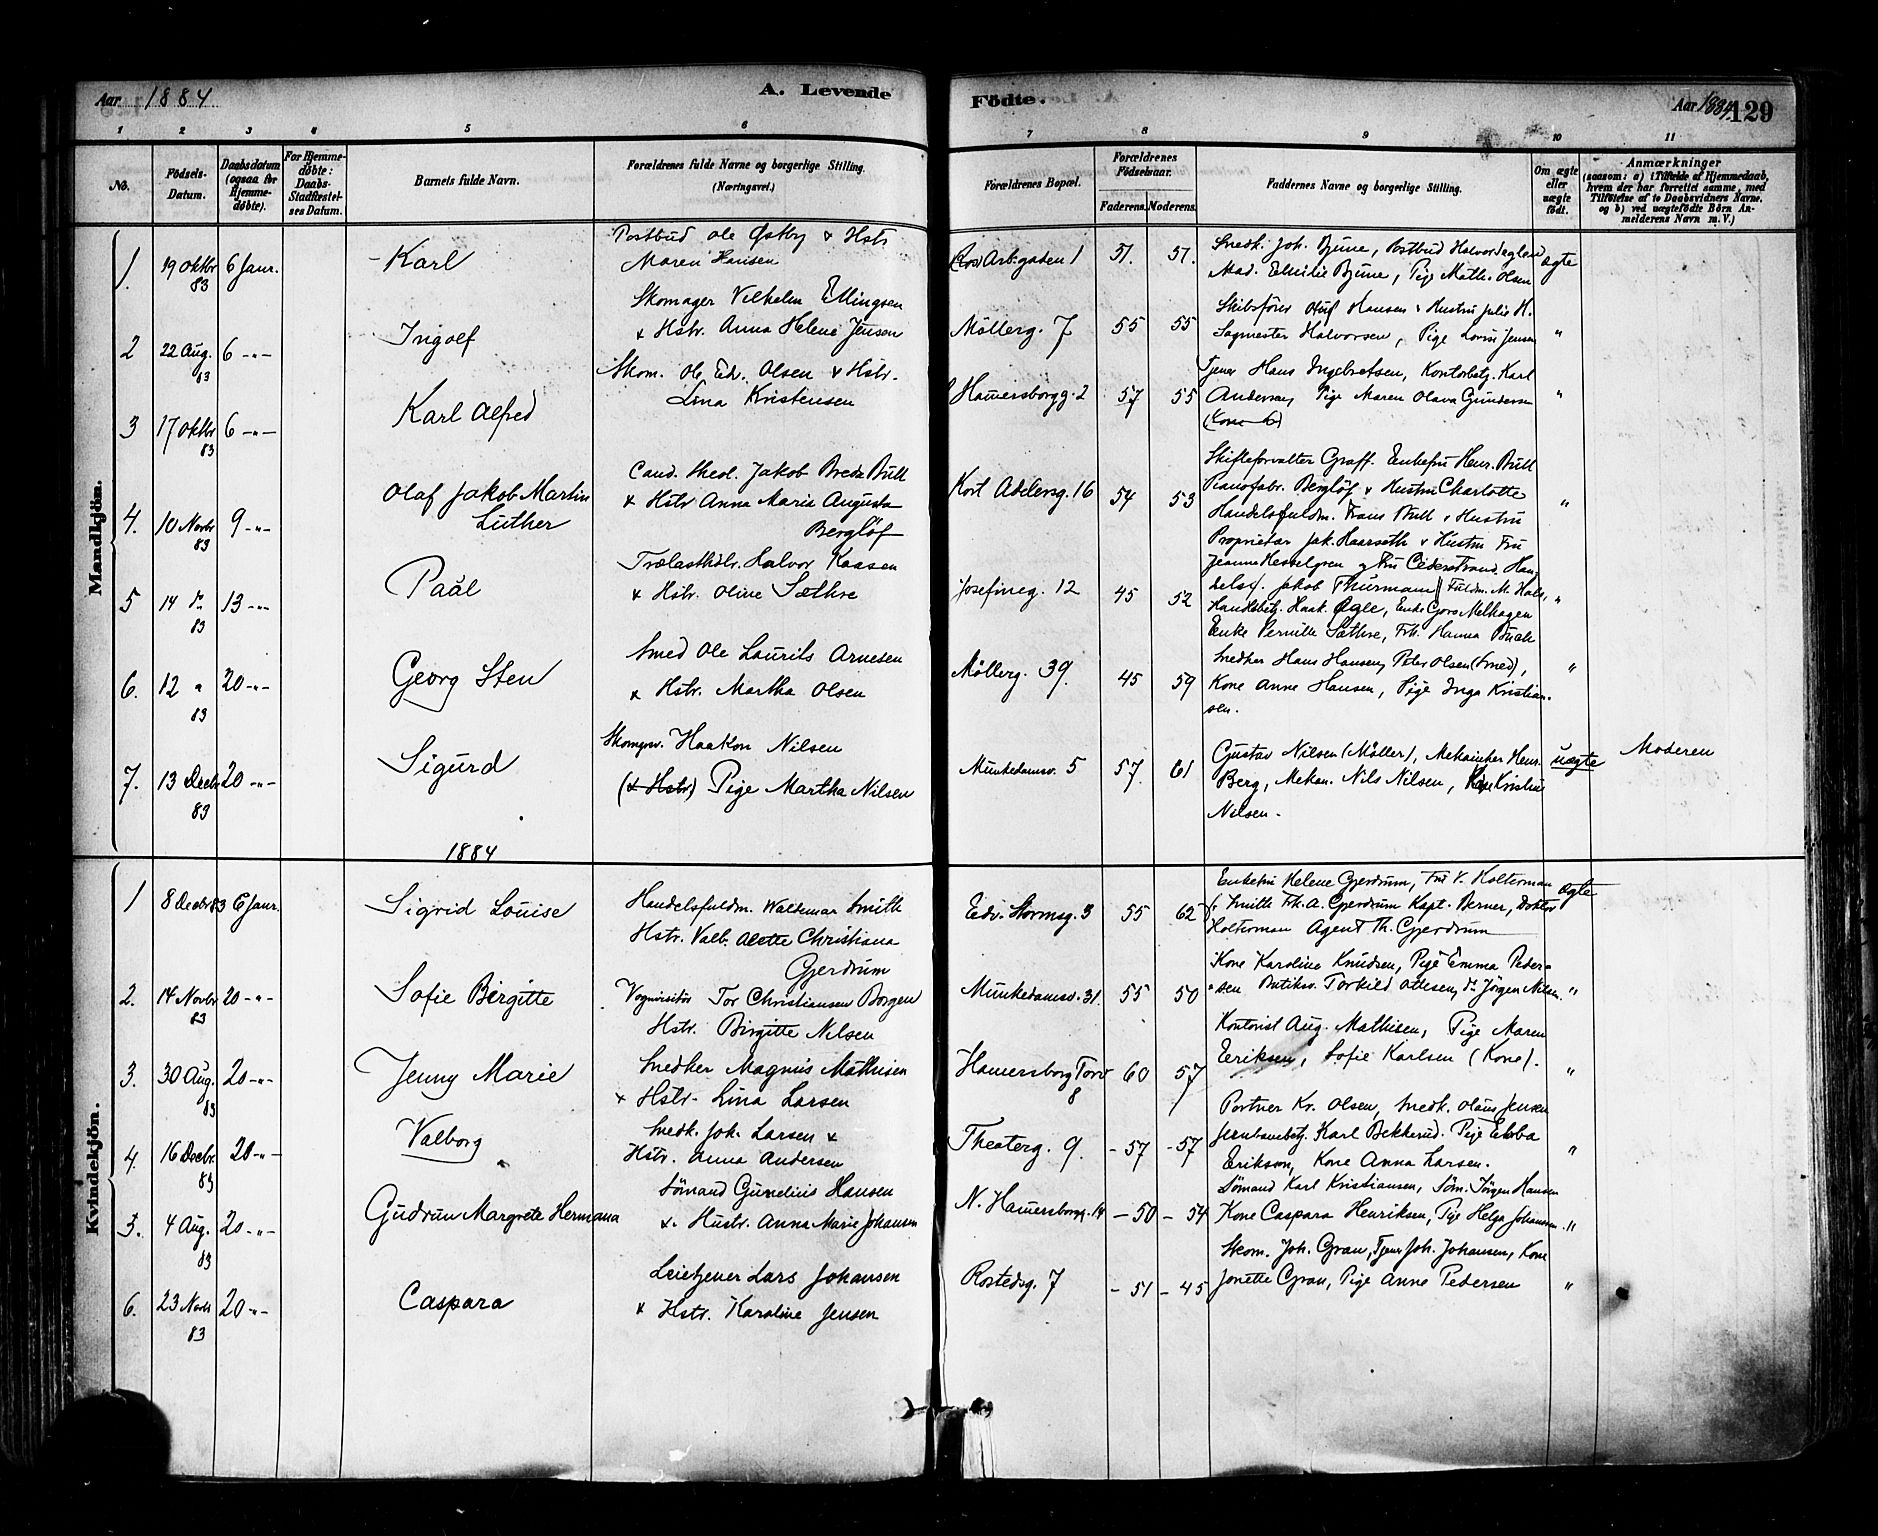 Aar 1884
A. Levende
Födte.
Aar 1884 129
1 2 3 4 5 6 7 8 9 10 11
No.
Födsels-
Datum.
Daabsdatum
(ogsaa for
Hjemme-
döbte).
For Hjemme-
döbte:
Daabs-
Stadfæstel-
ses Datum.
Barnets fulde Navn.
Forældrenes fulde Navne og borgerlige Stilling.
(Næringsvei.)
Forældrenes Bopæl.
Forældrenes
Födselsaar.
Faderens. Moderens.
Faddernes Navne og borgerlige Stilling.
Om ægte
eller
uægte
födt.
Anmærkninger
(saasom: a) i Tilfælde af Hjemmedaab,
hvem der har forrettet samme, med
Tilföielse af to Daabsvidners Navne,
og b) ved uægtefödte Börn An-
melderens Navn m. V.)
Mandkjön.
1. 19 Oktbr 83 6 Janr. Karl
Postbud Ole Østby & Hstr
Maren Hansen
Arb.gaden 1 51. 57.
Snedk. Joh. Bjune, Postbud Halvor
Mad. Emilie Bjune, Pige Math. Olsen
ægte
2 22 Aug. 83 6 -"- Ingolf
Skomager Vilhelm Ellingsen
& Hstr. Anna Helene Jensen
Möllerg. 7 55 55
Skibsförer Hansen & Hustru Julie H.
Sagmester Halvorsen, Pige Jensen
"
3 17 Oktbr 83 6 -"- Karl Alfred
Skom. Ole Edv. Olsen & Hstr.
Lina Kristensen
Hamersborgg. 2 57 55
Tjener Hans Ingebretsen, Kontorbetj. Karl
Andersen, Pige Maren Olava Gundersen
"
4. 10 Novbr 83 9 -"- Olaf Jakob Martin
Luther
Cand. theol. Jakob Breda Bull
& Hstr Anna Maria Augusta
Berglöf
Kort Adelersg. 16 54 53
Skifteforvalter Graff. Enkefru Henr. Bull
Pianofabr. Berglöf & Hustru Charlotte
Handelsfuldm. Frans Bull & Hustru
"
5 14 D. 83 13 -"- Paal
Trælasthdlr. Halvor Kaasen
& Hstr. Oline Sæthre
Josefineg. 12 45 52
Proprietær Jak. Haarseth & Hustru Fru
Jeanne Hesselgren og Fru Cederstrand. Han-
delsf. Jakob Thurmann Fuldm. M. Hals,
Handelsbetj. Haak. Øgle, Enke Melhagen
Enke Pernille Sæthre, Frk. Hanna
"
6. 12 " 83 20 -"- Georg Sten
Smed Ole Laurits Arnesen
& Hstr. Martha Olsen
Möllerg. 39. 45 59
Snedker Hans Hansen, Peter Olsen (Smed),
Kone Anne Hansen, Pige Inga Kristian-
sen.
"
7. 13 Decbr 83 20 -"- Sigurd
Haakon Nilsen
(& Hstr) Pige Martha Nilsen
Munkedamsv. 5 57 61
Gustav Nilsen (Möller), Mekaniker Henr.
Berg, Mekan. Nils Nilsen, Kristine
Nilsen.
uægte Moderen
1884
Kvindekjön.
1 8 Decbr 83 6 Janr. Sigrid Louise
Handelsfuldm. Waldemar Smith
Hstr. Valb. Alette Christiana
Gjerdrum
Edv. Stormsg. 3 55 62
Enkefru Helene Gjerdrum, Fru V. Holterman
f. Smith Frk. A. Gjerdrum Kapt. Berner, Doktor
Holterman Agent Th. Gjerdrum
ægte
2. 14 Novbr 83 20 -"- Sofie Birgitte
Vognvisitör Tor Christiansen Borgen
Hstr. Birgitte Nilsen
Munkedamsv. 31. 55 50
Kone Karoline Knudsen, Pige Emma Peder-
sen Butiksv. Torkild Ottesen, do Jörgen Nilsen.
"
3. 30 Aug. 83 20 -"- Jenny Marie
Snedker Magnus Mathisen
& Hstr. Lina Larsen
Hamersborg Torv
8 60 57
Kontorist Aug. Mathisen, Pige Maren
Eriksen, Sofie Karlsen (Kone).
"
4. 16 Decbr. 83 20 -"- Valborg
Snedk. Joh. Larsen &
Hstr. Anna Andersen
Theaterg. 9. - 57 - 57
Portner Kr. Olsen, Snedk. Olaus Jensen
Jernbanebetj. Karl Bekkerud. Pige Ebba
Erikson, Kone Anna Larsen.
"
5. 4 Aug. 83 20 -"- Gudrun Margrete Hermana
Sömand Gunelius Hansen
& Hustr. Anna Marie Johansen
N. Hamersborgg. 14 - 50 - 54
Sömand Karl Kristiansen, Söm. Jörgen Hansen
Kone Caspara Henriksen, Pige Helga Johansen.
"
6. 23 Novbr 83 20 -"- Caspara
Leietjener Lars Johansen
& Hstr. Karoline Jensen
Rostedsg. 7 - 51 - 45
Skom. Joh. Gran, Tjener Joh. Johansen, Kone
Jonette Gran, Pige Anne Pedersen
"